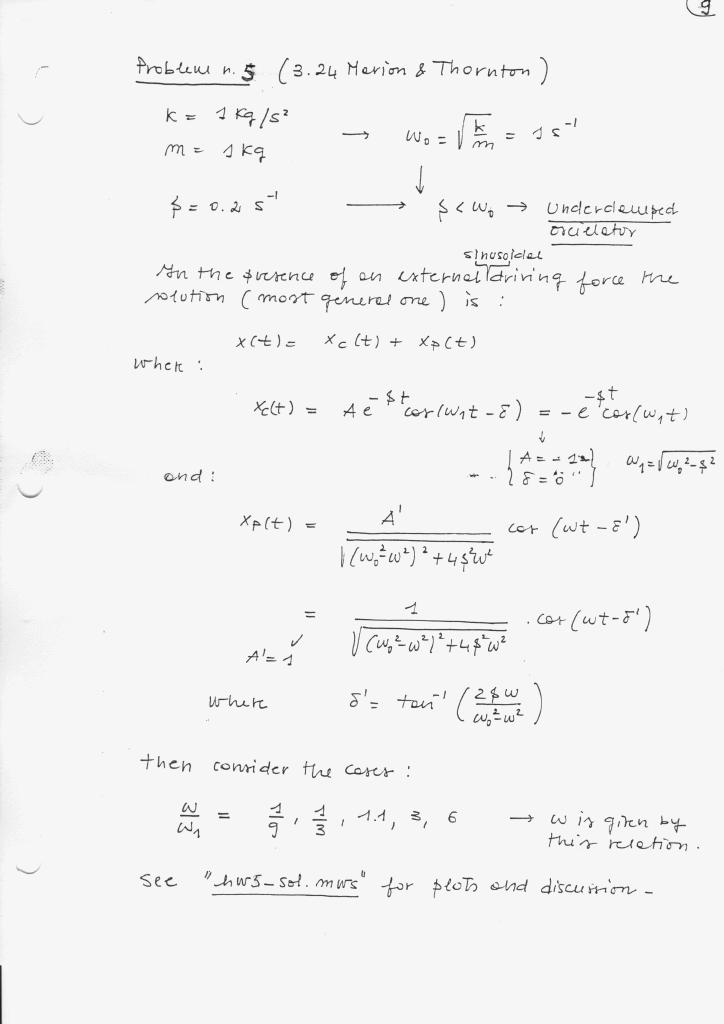 9
Problem n. 5 (3.24 Marion & Thornton)
k = 1 kg/s² → ω₀ = √(k/m) = 1 s⁻¹
m = 1 kg
↓
β = 0.2 s⁻¹ → β < ω₀ → Underdamped
oscillator
sinusoidal
In the presence of an external driving force the
solution (most general one) is :
x(t) = x_c(t) + x_p(t)
where :
x_c(t) = A e^(-βt) cos(ω₁t - δ) = -e^(-βt) cos(ω₁t)
↓
{ A = -1 } ω₁ = √(ω₀² - β²)
and : { δ = "0" }
x_p(t) = A' / √((ω₀² - ω²)² + 4β²ω²) cos (ωt - δ')
= 1 / √((ω₀² - ω²)² + 4β²ω²) · cos (ωt - δ')
A' = 1
where δ' = tan⁻¹ (2βω / (ω₀² - ω²))
then consider the cases :
ω/ω₁ = 1/9, 1/3, 1.1, 3, 6 → ω is given by
this relation.
see "hw5-sol.mws" for plots and discussion -